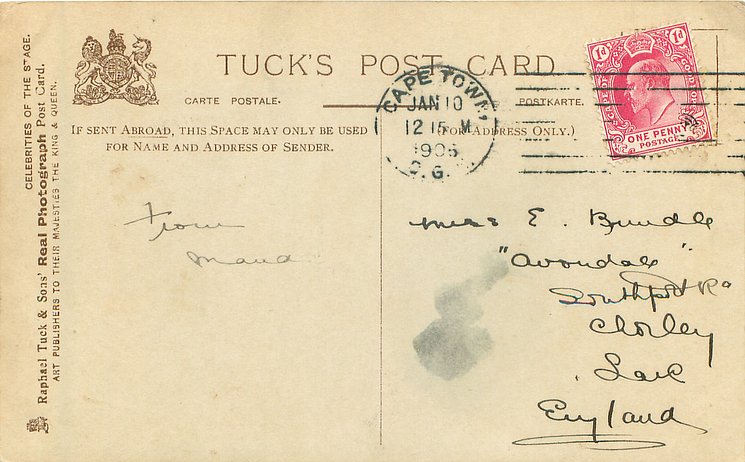 TUCK'S POST CARD
CARTE POSTALE.
POSTKARTE.
IF SENT ABROAD, THIS SPACE MAY ONLY BE USED
FOR NAME AND ADDRESS OF SENDER.
(FOR ADDRESS ONLY.)
CAPE TOWN,
JAN 10
12 15 M
1906
C.G.
1d 1d
CAPE OF GOOD HOPE
ONE PENNY
POSTAGE
CELEBRITIES OF THE STAGE.
Raphael Tuck & Sons' Real Photograph Post Card.
ART PUBLISHERS TO THEIR MAJESTIES THE KING & QUEEN.
From
Maud
Miss E. Bundle
"Avondale"
Southport Rd
Chorley
Lanc
England